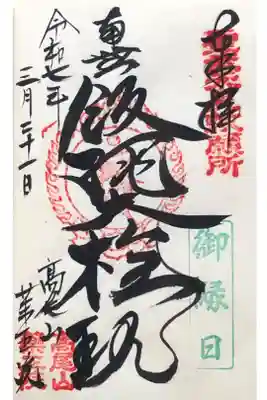 奉拝
御縁日
飯縄大権現
令和七年
三月二十一日
高尾山
薬王院
高尾山